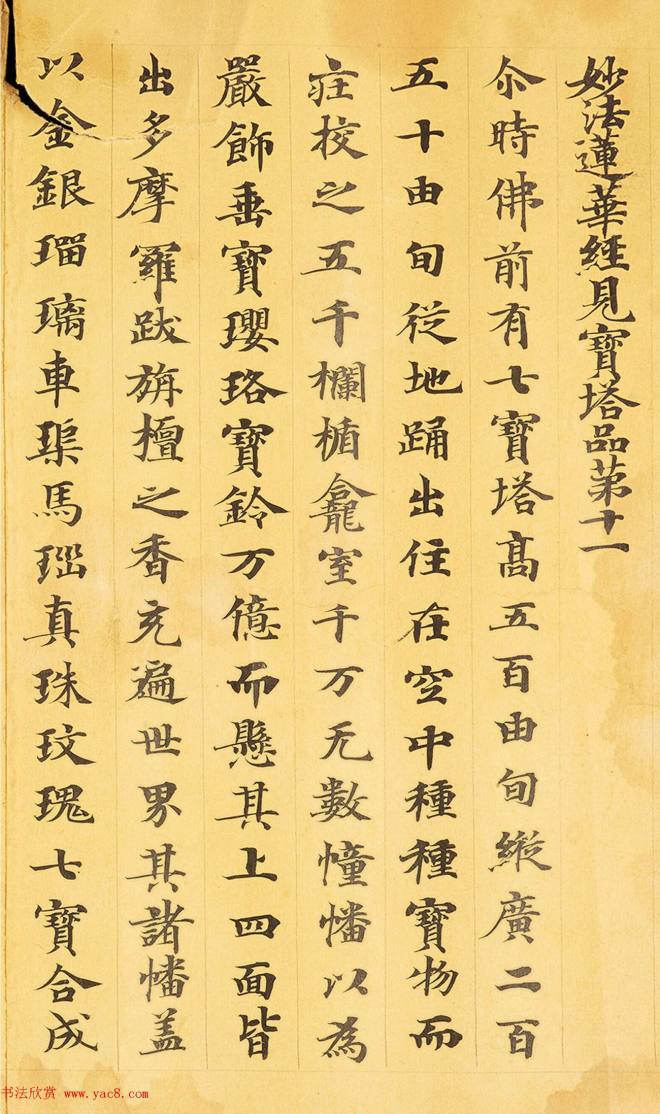 妙法蓮華經見寶塔品苐十一
尒時佛前有七寶塔髙五百由旬縱廣二百
五十由旬從地踊出住在空中種種寶物而
莊校之五千欄楯龕室千万无數幢幡以為
嚴飾垂寶瓔珞寶鈴万億而懸其上四面皆
出多摩羅跋栴檀之香充遍世界其諸幡盖
以金銀瑠璃車璖馬瑙真珠玫瑰七寶合成
书法欣赏 www.yac8.com